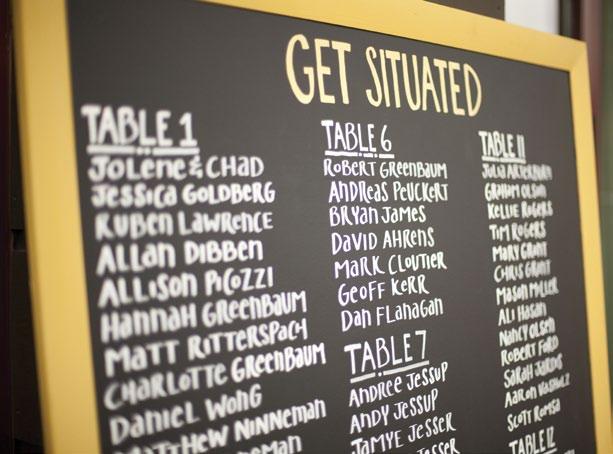 GET SITUATED
TABLE 1
JOLENE & CHAD
JESSICA GOLDBERG
RUBEN LAWRENCE
ALLAN DIBBEN
ALLISON PICOZZI
HANNAH GREENBAUM
MATT RITTERSPACH
CHARLOTTE GREENBAUM
DANIEL WONG
MATTHEW NINNEMAN
TABLE 6
ROBERT GREENBAUM
ANDREAS PEUCKERT
BRYAN JAMES
DAVID AHRENS
MARK CLOUTIER
GEOFF KERR
DAN FLANAGAN
TABLE 7
ANDREE JESSUP
ANDY JESSUP
JAMYE JESSER
JESSER
TABLE 11
JULIA ARTERBURN
GRAHAM OLSON
KELLIE ROGERS
TIM ROGERS
MARY GRANT
CHRIS GRANT
MASON MILLER
ALI HASAN
NANCY OLSEN
ROBERT FORD
SARAH JARDIS
AARON
SCOTT ROMSA
TABLE 12